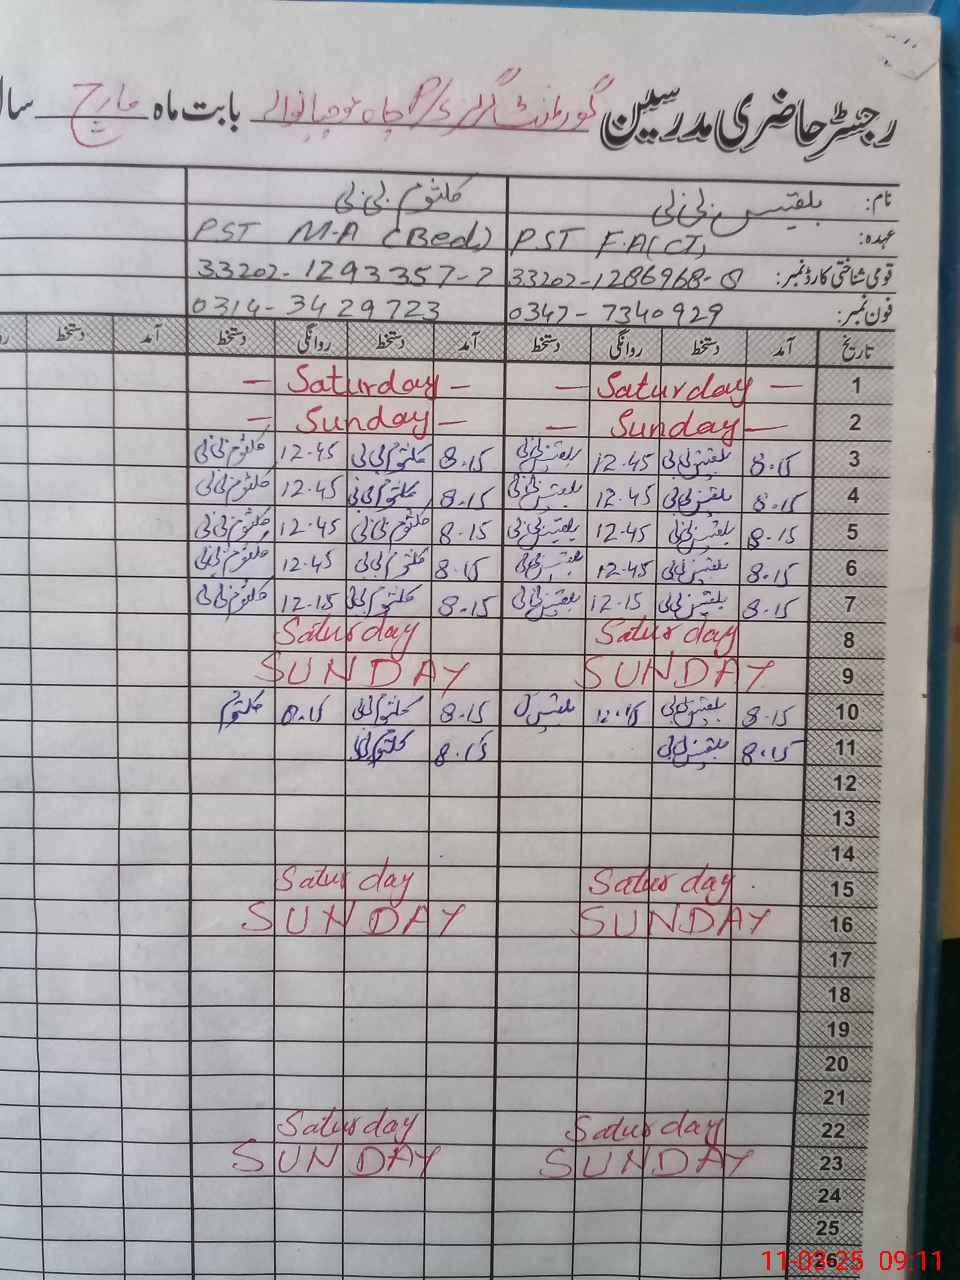 رجسٹر حاضری مدرسین گورنمنٹ گرلز P/S چاہ بابت ماہ مارچ سال
نام: بلقیس بی بی کلثوم بی بی
عہدہ: PST F.A(CT) PST M.A (Bed)
قومی شناختی کارڈ نمبر: 33202-1286968-8 33202-1293357-2
فون نمبر: 0347-7340929 0314-3429723
تاریخ آمد دستخط روانگی دستخط آمد دستخط روانگی دستخط آمد دستخط
1 — Saturday — — Saturday —
2 Sunday — — Sunday — —
3 8.15 بلقیس بی بی 12.45 بلقیس بی بی 8.15 کلثوم بی بی 12.45 کلثوم بی بی
4 8.15 بلقیس بی بی 12.45 بلقیس بی بی 8.15 کلثوم بی بی 12.45 کلثوم بی بی
5 8.15 بلقیس بی بی 12.45 بلقیس بی بی 8.15 کلثوم بی بی 12.45 کلثوم بی بی
6 8.15 بلقیس بی بی 12.45 بلقیس بی بی 8.15 کلثوم بی بی 12.45 کلثوم بی بی
7 8.15 بلقیس بی بی 12.15 بلقیس بی بی 8.15 کلثوم بی بی 12.15 کلثوم بی بی
8 Saturday Saturday
9 SUNDAY SUNDAY
10 8.15 بلقیس بی بی بلقیس 8.15 کلثوم بی بی 8.15 کلثوم
11 8.15 بلقیس بی بی 8.15 کلثوم بی بی
12
13
14
15 Saturday Saturday
16 SUNDAY SUNDAY
17
18
19
20
21
22 Saturday Saturday
23 SUNDAY SUNDAY
24
25
26
11-03-25 09:11